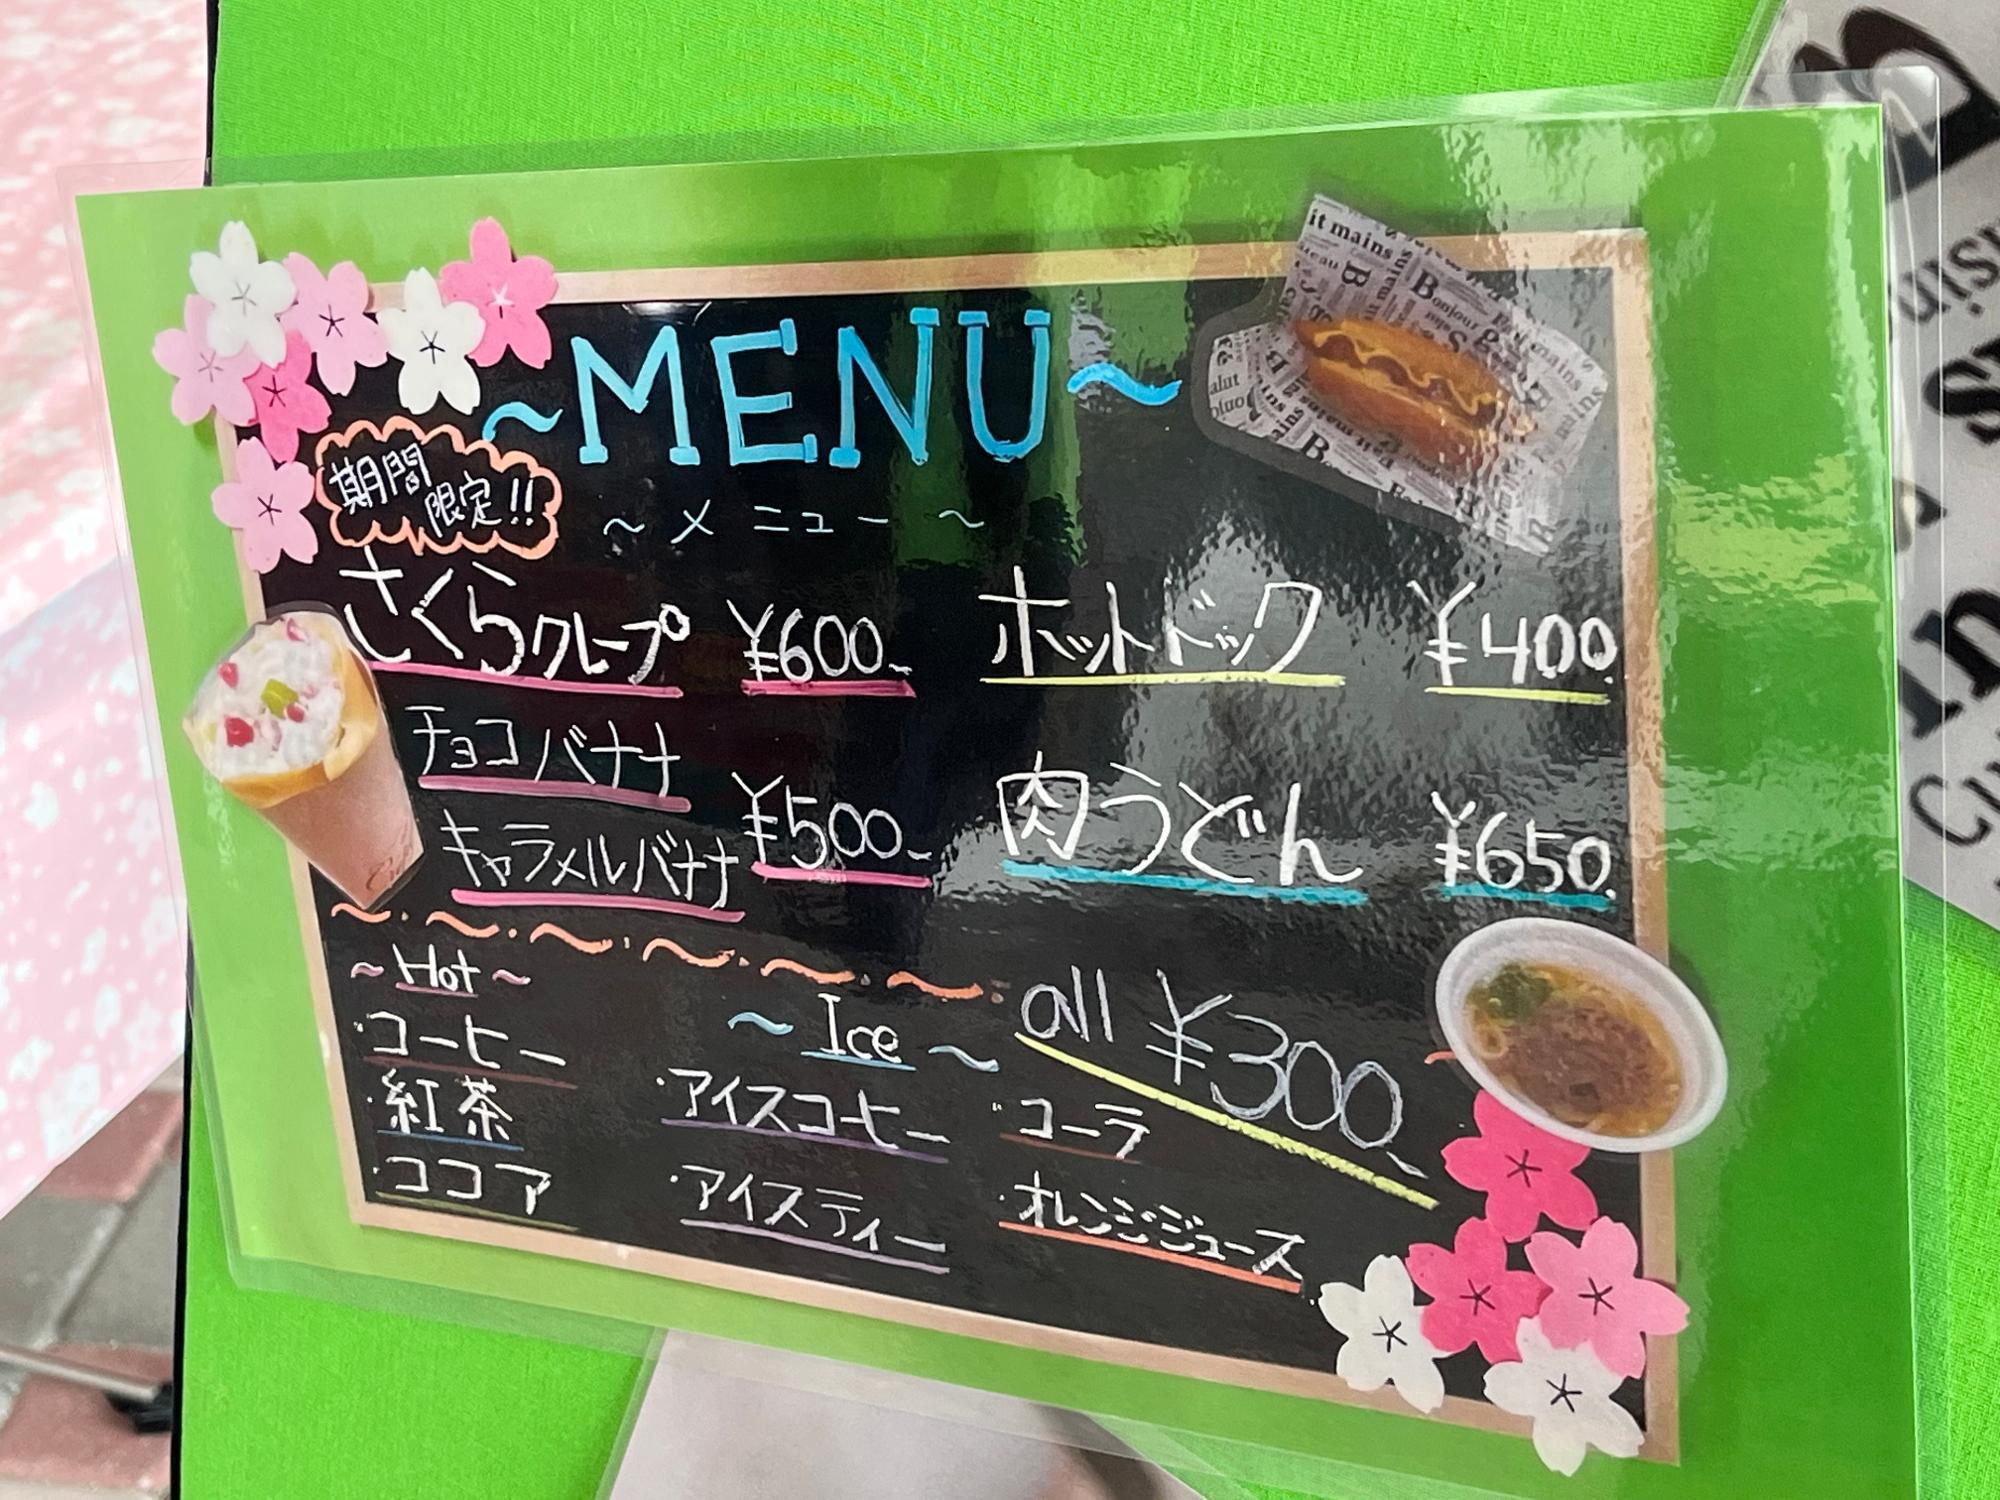 ~MENU~
期間
限定!!
~メニュー~
さくらクレープ ¥600-
チョコバナナ
キャラメルバナナ
¥500-
ホットドック ¥400.
肉うどん ¥650.
~Hot~
・コーヒー
・紅茶
・ココア
~Ice~
・アイスコーヒー
・アイスティー
all ¥300-
・コーラ
・オレンジジュース
it mains
Bonjour